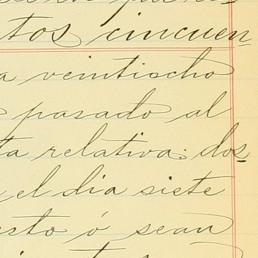 tos cincuen-
a veintiocho
pasado al
ta relativa: dos
el dia siete
sto ó sean